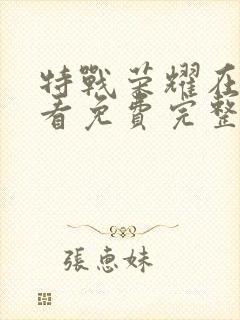 特戰荣耀在
看免費完整
張惠妹